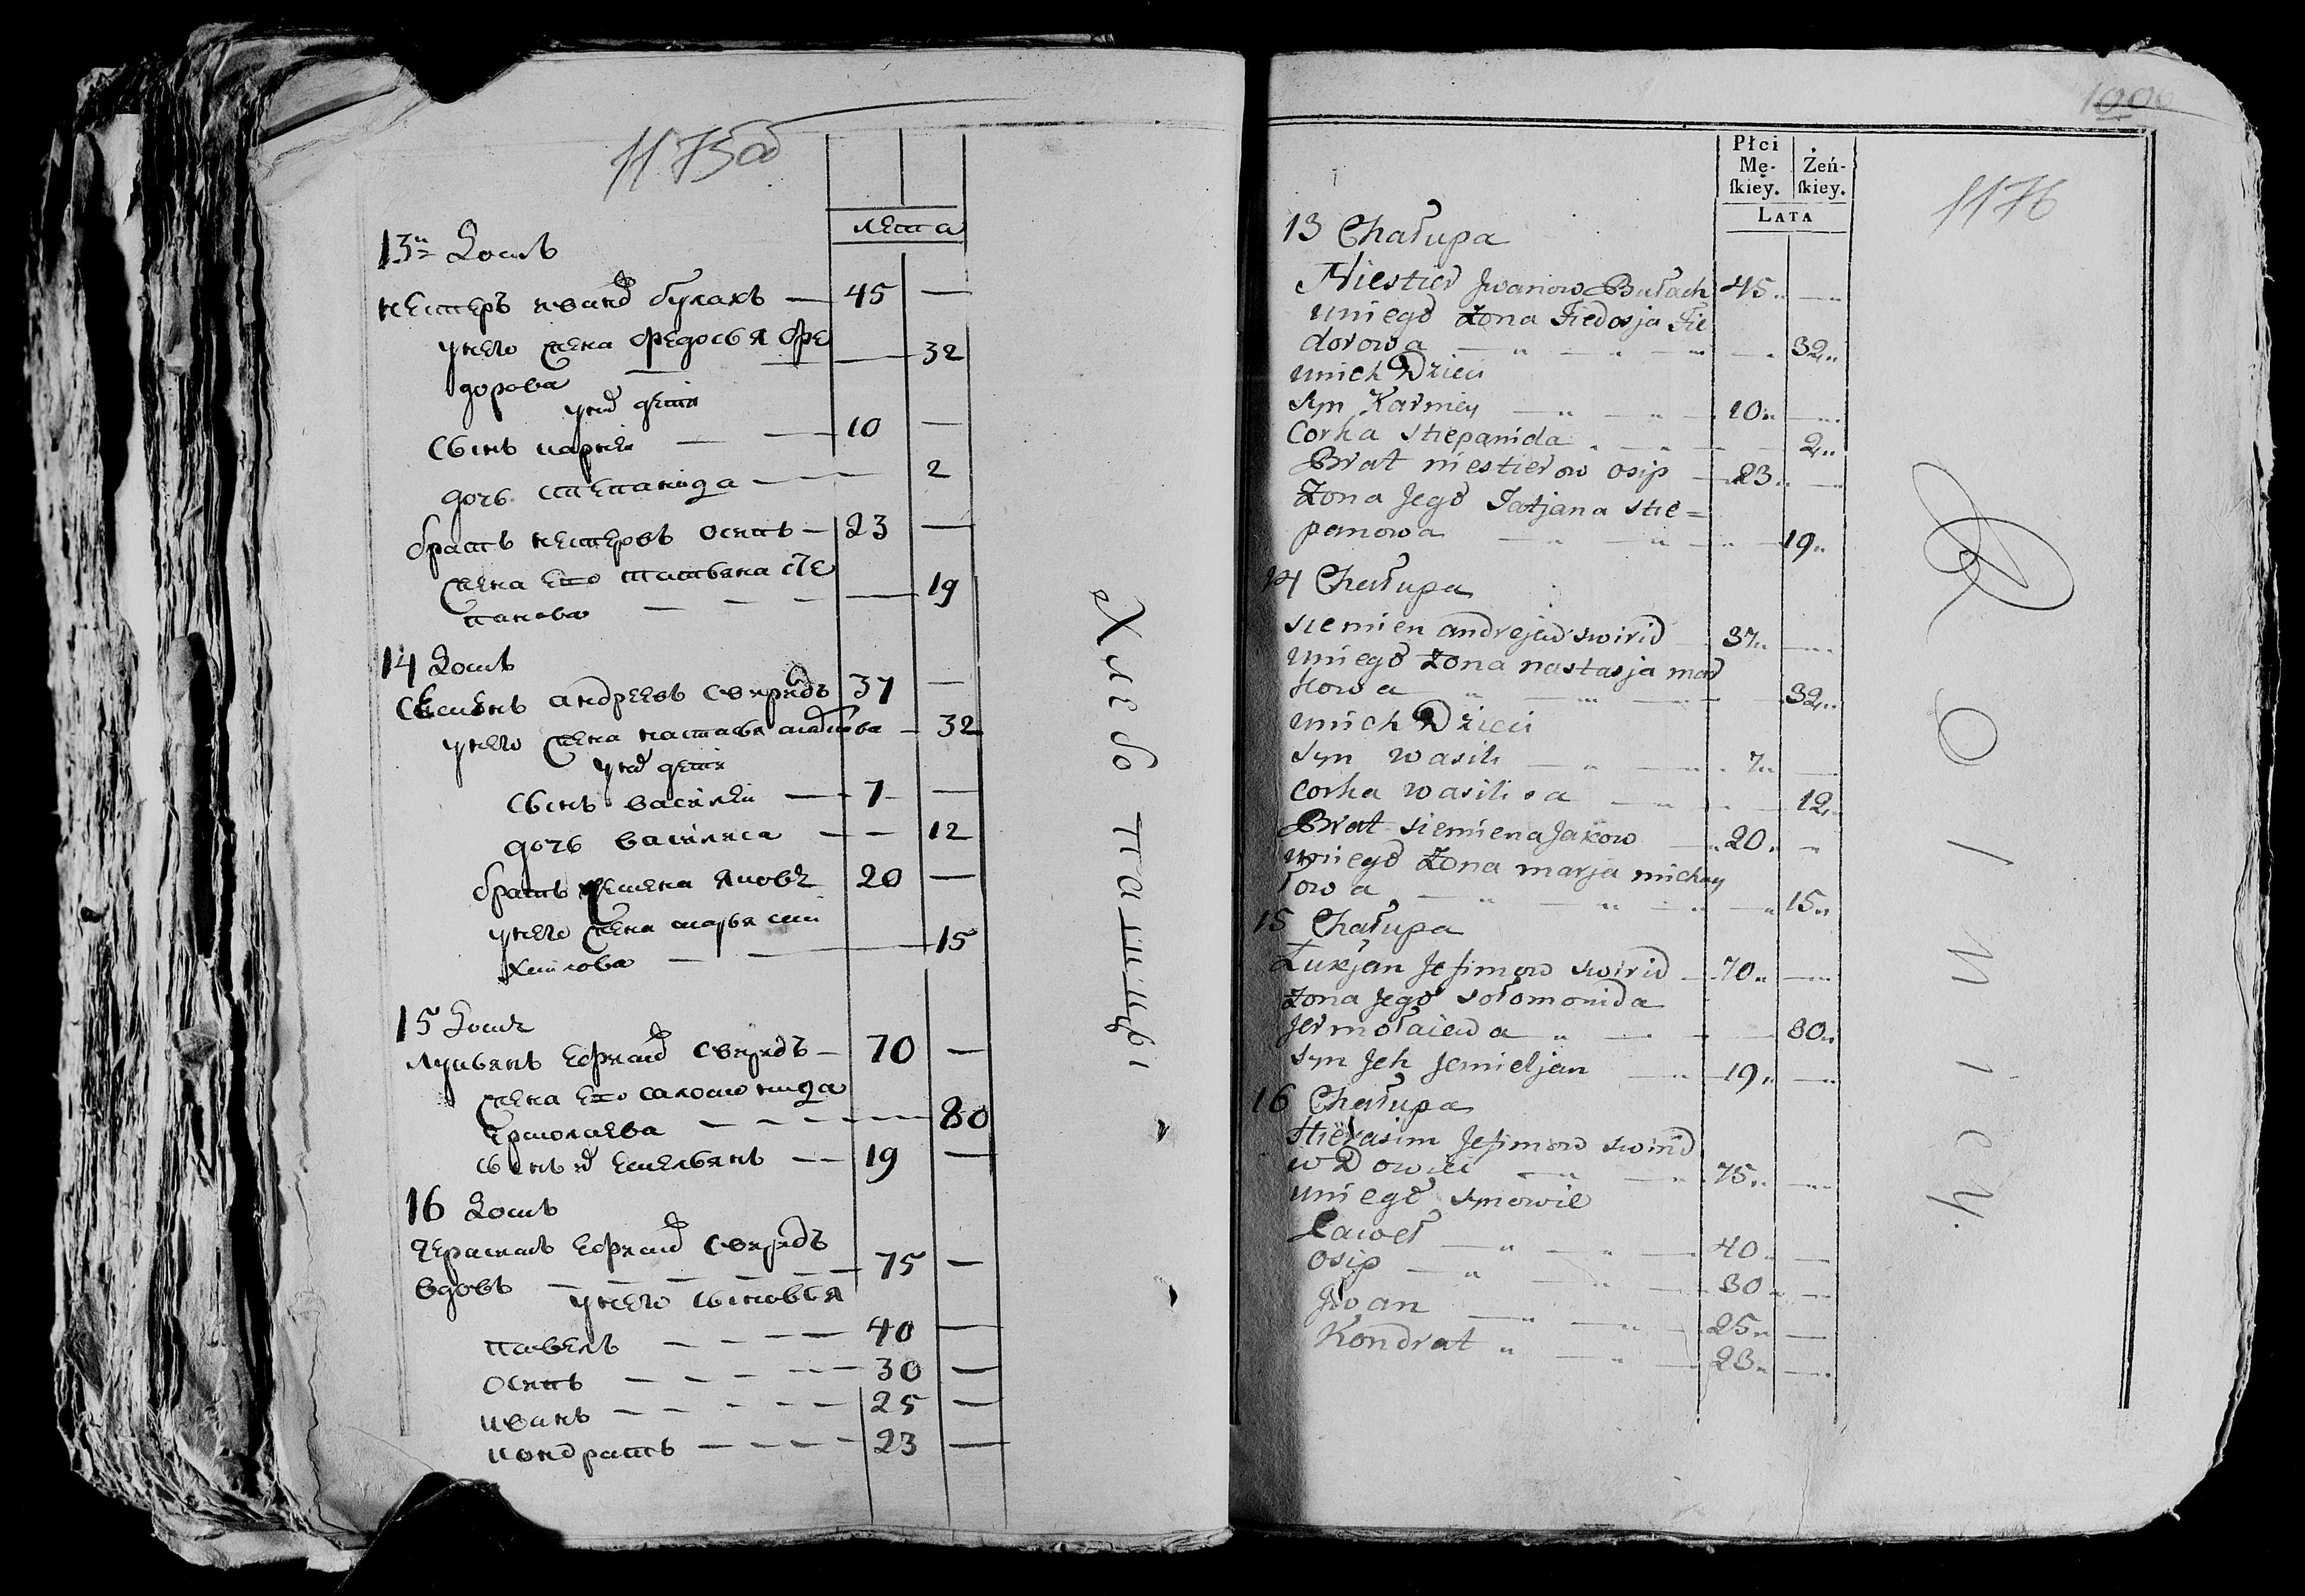 1175об
лета
13й Домъ
нестеръ иванов булахъ — 45 —
у него жена федосья фе
дорова — 32
у них дети
сынъ карней — 10 —
дочь степанида — 2
братъ нестеровъ осипъ — 23 —
жена ево татьяна сте
панова — 19
14 Домъ
семенъ андреевъ свиридъ 37 —
у него жена настасья — 32
у них дети
сынъ василей — 7 —
дочь василиса — 12
братъ семена яковъ 20 —
у него жена марья ми
хайлова — 15
15 Домъ
лукьянъ ефимов свиридъ — 70 —
жена ево саломонида
ермолаева — 80
сынъ их емельянъ — 19 —
16 Домъ
герасимъ ефимов свиридъ
вдовъ — 75 —
у него сыновья
павелъ — 40 —
осипъ — 30 —
иванъ — 25 —
кондратъ — 23 —
Хлебопашцы
1000
1176
Płci
Mę- | Żeń-
ſkiey. | ſkiey.
LATA
13 Chałupa
Niestier Jwanow Bułach 45 —
uniego żona Fiedosja Fie
dorowa — 32
unich Dzieci
syn Karniey — 10 —
Corka Stiepanida — 2
Brat niestierow osip — 23 —
żona Jego Tatjana Stie=
panowa — 19
14 Chałupa
siemien andrejew swirid — 37 —
uniego żona nastasja mar
kowa — 32
unich Dzieci
syn wasili — 7 —
corka wasilisa — 12
Brat siemiena Jakow — 20 —
uniego żona marja michay
łowa — 15
15 Chałupa
Łukjan Jefimow swirid — 70 —
żona Jego sołomonida
Jermołaiewa — 80
syn Jch Jemieljan — 19 —
16 Chałupa
Hierasim Jefimow swirid
wDowiec — 75 —
uniego synowie
Paweł — 40 —
osip — 30 —
Jwan — 25 —
Kondrat — 23 —
Rolnicy.